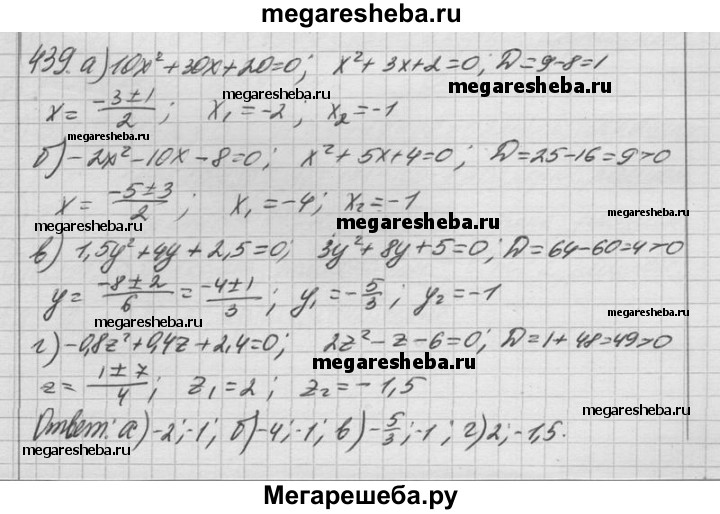 megaresheba.ru
439. а) 10x² + 30x + 20 = 0; x² + 3x + 2 = 0; D = 9 - 8 = 1
megaresheba.ru
x = (-3 ± 1)/2; x₁ = -2; x₂ = -1
megaresheba.ru
megaresheba.ru
megaresheba.ru
б) -2x² - 10x - 8 = 0; x² + 5x + 4 = 0; D = 25 - 16 = 9 > 0
x = (-5 ± 3)/2; x₁ = -4; x₂ = -1
megaresheba.ru
megaresheba.ru
в) 1,5y² + 4y + 2,5 = 0; 3y² + 8y + 5 = 0; D = 64 - 60 = 4 > 0
megaresheba.ru
y = (-8 ± 2)/6 = (-4 ± 1)/3; y₁ = -5/3; y₂ = -1
megaresheba.ru
megaresheba.ru
г) -0,8z² + 0,4z + 2,4 = 0; 2z² - z - 6 = 0; D = 1 + 48 = 49 > 0
megaresheba.ru
z = (1 ± 7)/4; z₁ = 2; z₂ = -1,5
megaresheba.ru
Ответ: а) -2; -1; б) -4; -1; в) -5/3; -1; г) 2; -1,5.
megaresheba.ru
megaresheba.ru
Мегарешеба.ру